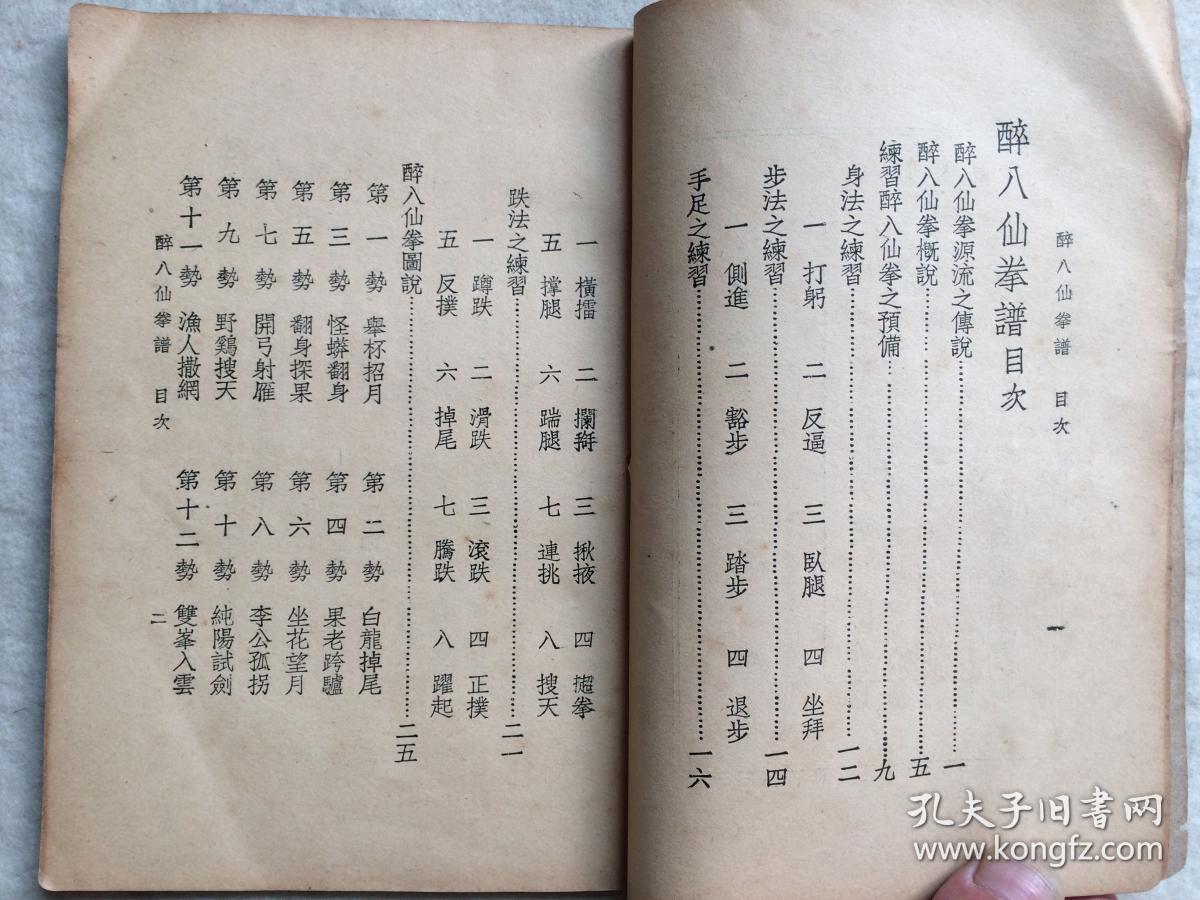 醉八仙拳譜 目次
一
醉八仙拳譜目次
醉八仙拳源流之傳說……一
醉八仙拳概說……五
練習醉八仙拳之預備……九
身法之練習……一二
一 打躬 二 反逼 三 臥腿 四 坐拜
步法之練習……一四
一 側進 二 豁步 三 踏步 四 退步
手足之練習……一六
一 橫擂 二 攔 三 揪掖 四 拳
五 撑腿 六 踹腿 七 連挑 八 搜天
跌法之練習……二一
一 蹲跌 二 滑跌 三 滾跌 四 正撲
五 反撲 六 掉尾 七 騰跌 八 躍起
醉八仙拳圖說……二五
第一勢 舉杯招月 第二勢 白龍掉尾
第三勢 怪蟒翻身 第四勢 果老跨驢
第五勢 翻身探果 第六勢 坐花望月
第七勢 開弓射雁 第八勢 李公孤拐
第九勢 野鷄搜天 第十勢 純陽試劍
第十一勢 漁人撒網 第十二勢 雙峯入雲
醉八仙拳譜 目次
二
孔夫子旧书网
www.kongfz.com